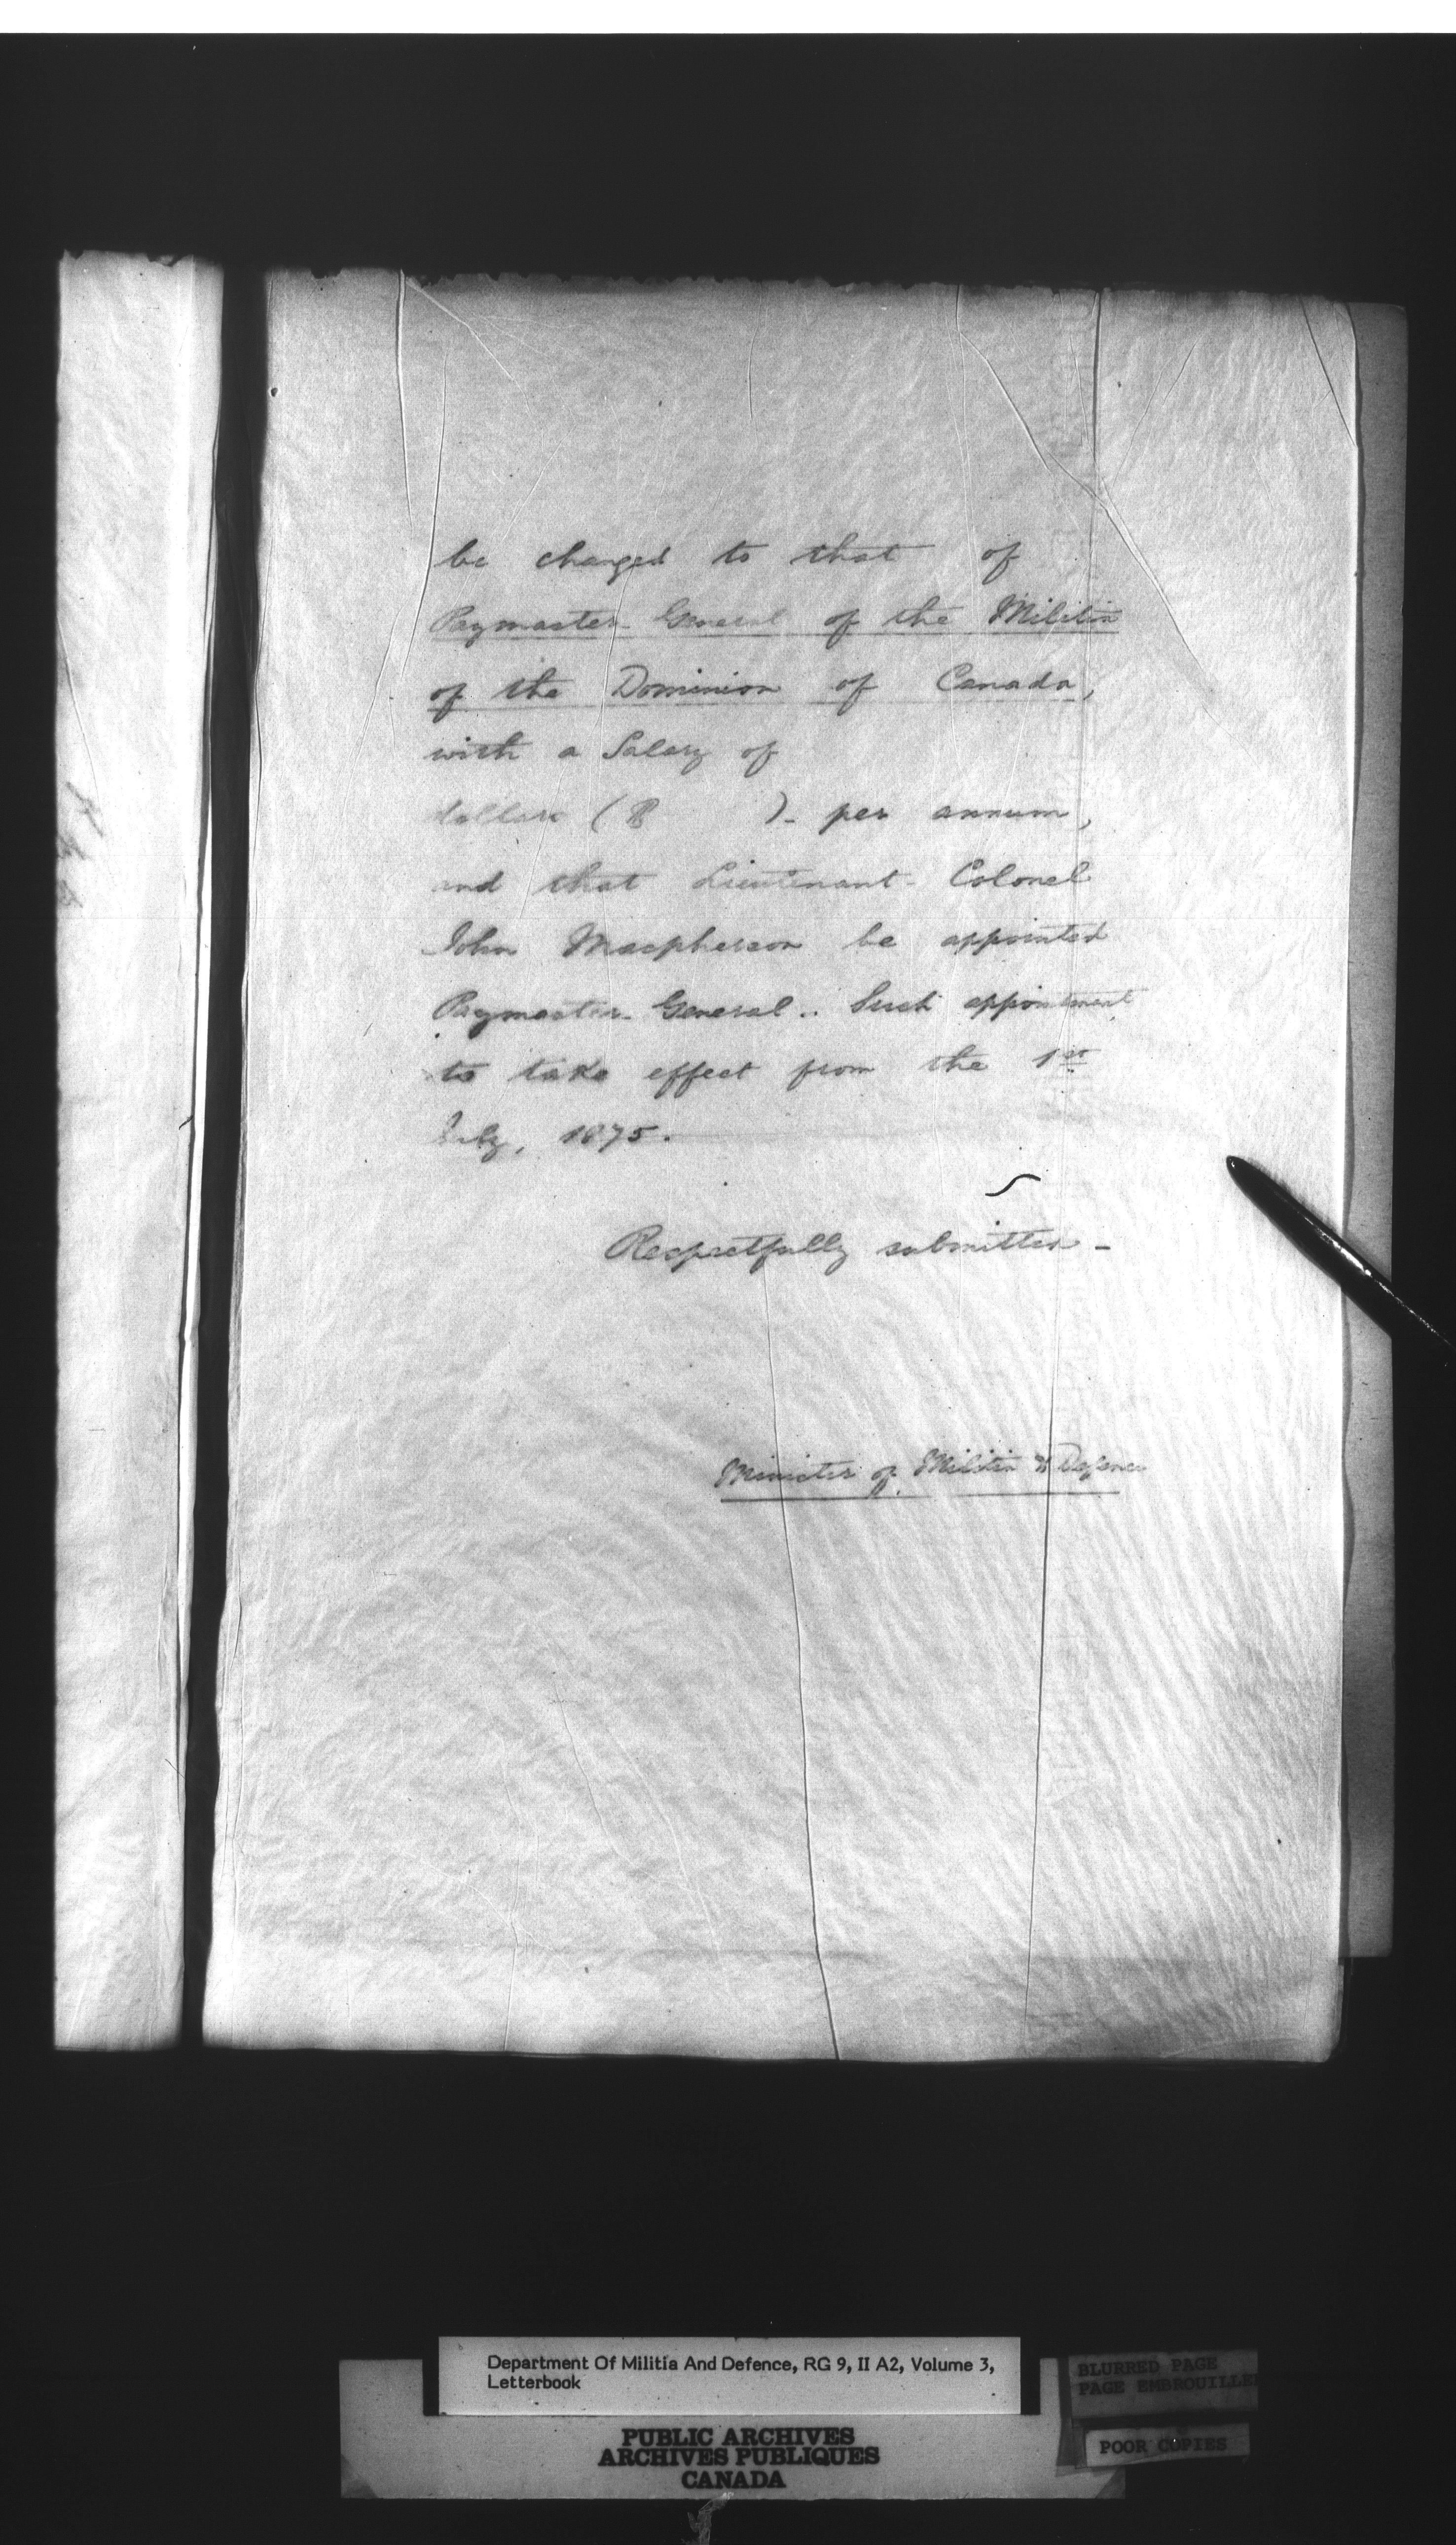 be changed to that of
Paymaster-General of the Militia
of the Dominion of Canada,
with a Salary of
dollars ($ )- per annum,
and that Lieutenant-Colonel
John Macpherson be appointed
Paymaster-General.. Such appointment
to take effect from the 1st
July, 1875.
Respectfully submitted -
Minister of Militia & Defence
Department Of Militia And Defence, RG 9, II A2, Volume 3,
Letterbook
PUBLIC ARCHIVES
ARCHIVES PUBLIQUES
CANADA
BLURRED PAGE
PAGE EMBROUILLE
POOR COPIES